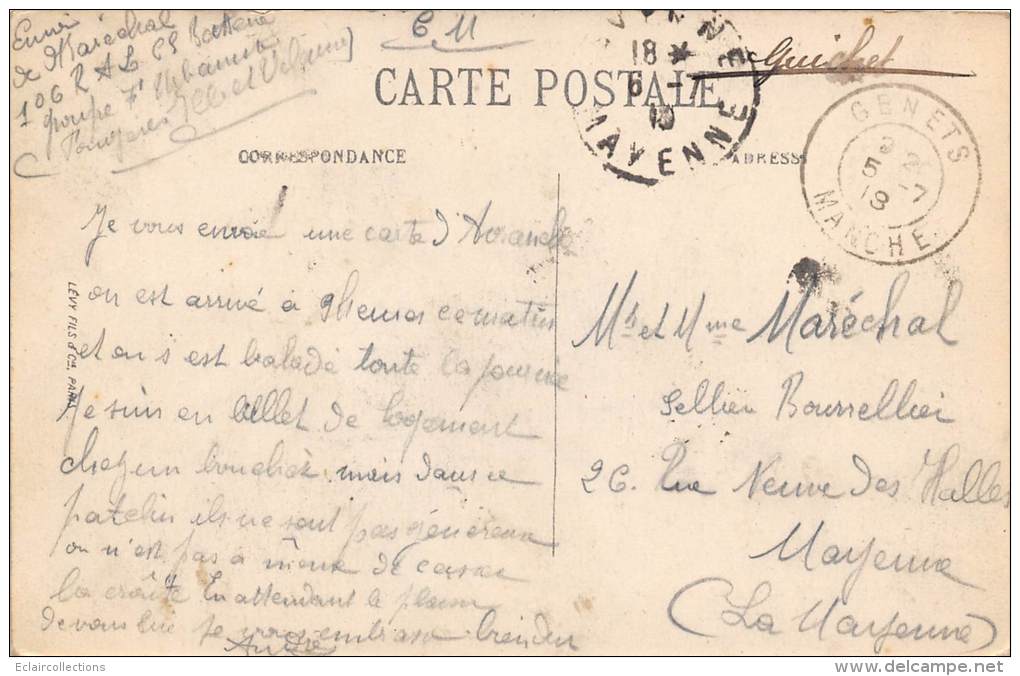 Envoi
de Maréchal
106 R A L Batterie
groupe
Fougères Ille et Vilaine
F M
Guichet
CARTE POSTALE
MAYENNE
18 *
6 - 7
18
MAYENNE
GENETS
5 7
18
MANCHE
CORRESPONDANCE
ADRESSE
Je vous envoie une carte d'Avranches
on est arrivé à 9 heures ce matin
et on s'est baladé toute la journée
Je suis en billet de logement
chez un boucher mais dans ce
patelin ils ne sont pas généreux
on n'est pas à même de casser
la croûte En attendant le plaisir
de vous lire je vous embrasse bien
André
Mr et Mme Maréchal
Sellier Bourrellier
26. Rue Neuve des Halles
Mayenne
(La Mayenne)
LÉVY FILS & Cie, PARIS
Eclaircollections
www.delcampe.net